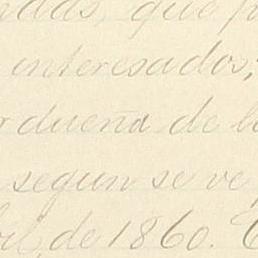 que
interesados;
dueña de
segun se ve
de 1860.